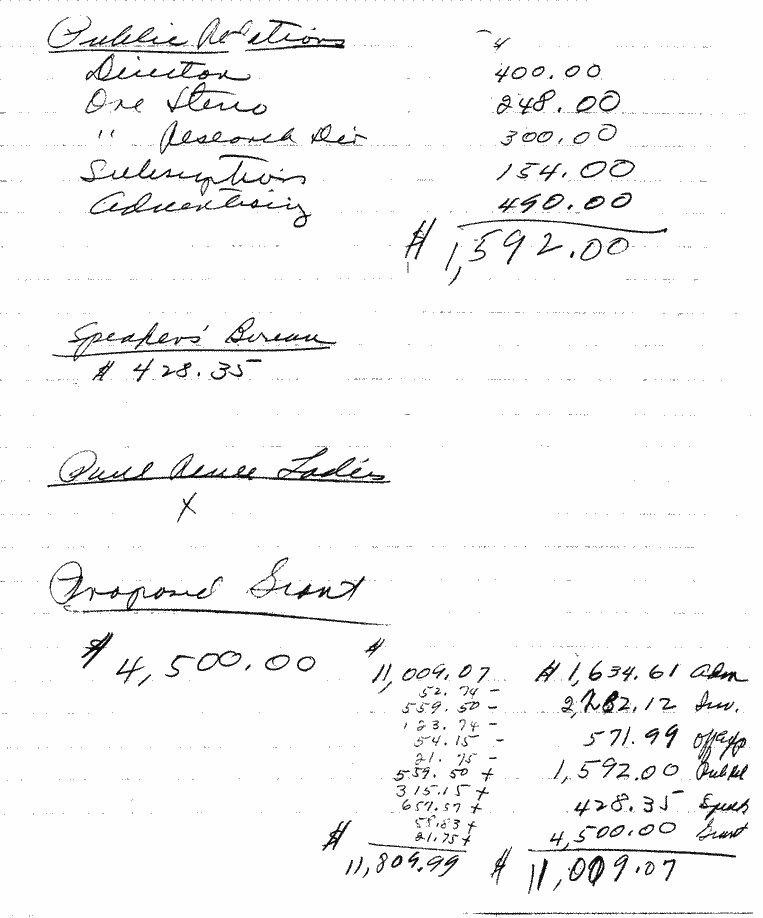 Public Relations
Director 400.00
One Steno 248.00
" Research Dir 300.00
Subscriptions 154.00
Advertising 490.00
$ 1,592.00
Speakers' Bureau
$ 428.35
Ladies
X
Proposed Grant
$ 4,500.00
$ 11,009.07 $ 1,634.61 Adm
52.74 -
559.50 - 2,282.12 Inv.
123.74 -
54.15 - 571.99 Off Exp
21.75 -
559.50 + 1,592.00 Pub Rel
315.15 +
657.57 + 428.35 Speak
58.83 +
21.75 + 4,500.00 Grant
$ 11,809.99 $ 11,009.07